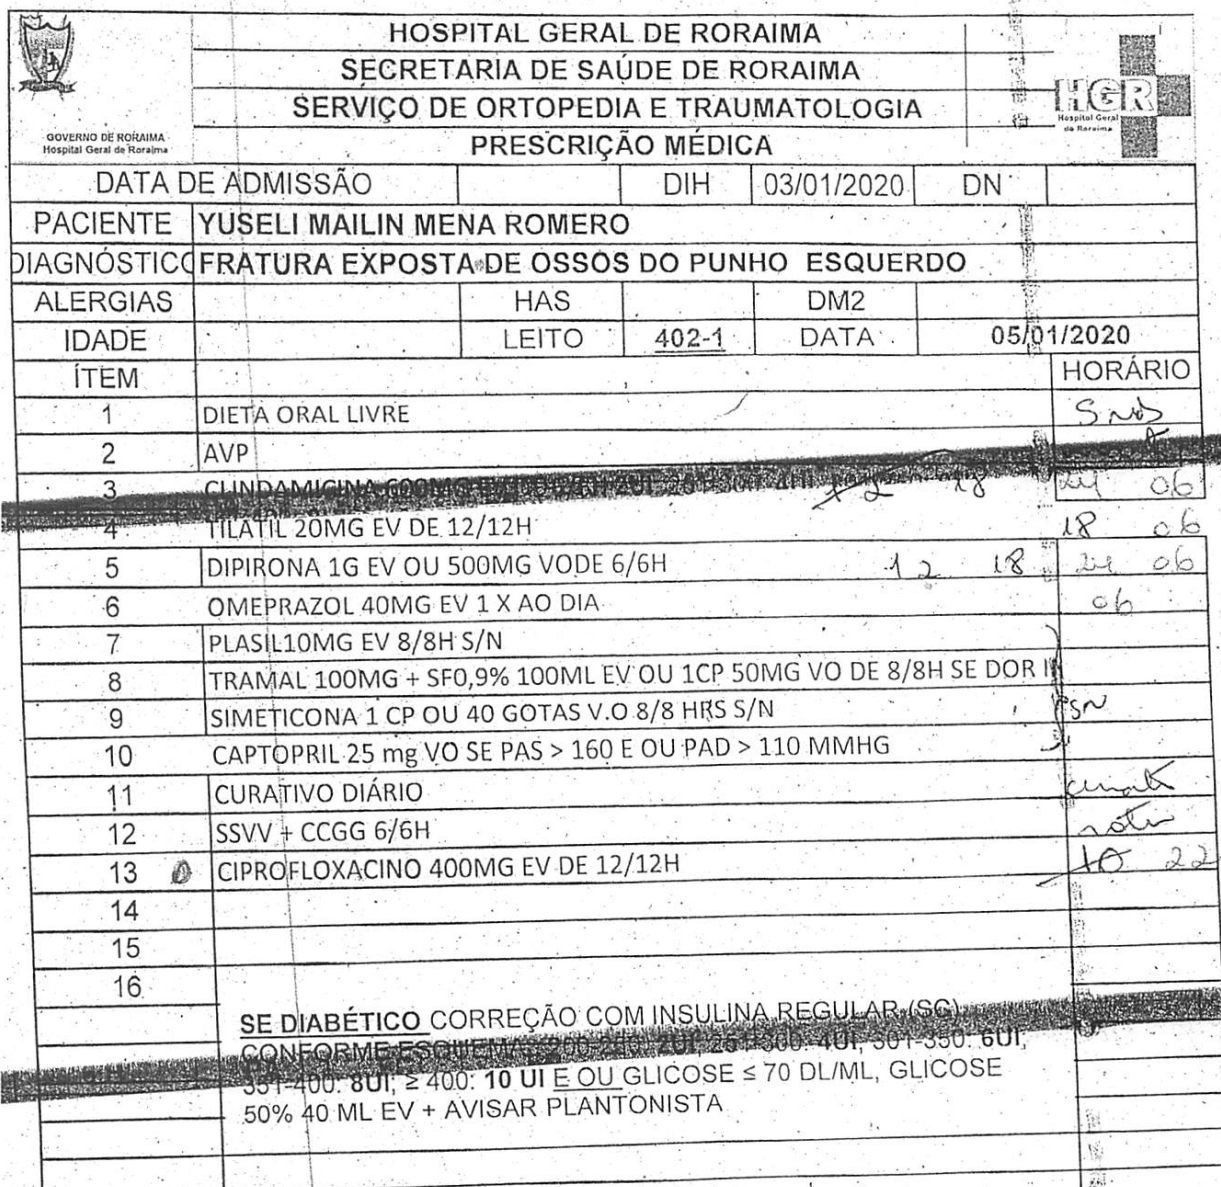 HOSPITAL GERAL DE RORAIMA
SECRETARIA DE SAÚDE DE RORAIMA
SERVIÇO DE ORTOPEDIA E TRAUMATOLOGIA
PRESCRIÇÃO MÉDICA
GOVERNO DE RORAIMA
Hospital Geral de Roraima
HGR
Hospital Geral
de Roraima
DATA DE ADMISSÃO DIH 03/01/2020 DN
PACIENTE YUSELI MAILIN MENA ROMERO
DIAGNÓSTICO FRATURA EXPOSTA DE OSSOS DO PUNHO ESQUERDO
ALERGIAS HAS DM2
IDADE LEITO 402-1 DATA 05/01/2020
ÍTEM HORÁRIO
1 DIETA ORAL LIVRE SND
2 AVP
3 CLINDAMICINA 600MG 12 18 24 06
4 TILATIL 20MG EV DE 12/12H 18 06
5 DIPIRONA 1G EV OU 500MG VODE 6/6H 12 18 24 06
6 OMEPRAZOL 40MG EV 1 X AO DIA 06
7 PLASIL10MG EV 8/8H S/N
8 TRAMAL 100MG + SF0,9% 100ML EV OU 1CP 50MG VO DE 8/8H SE DOR
9 SIMETICONA 1 CP OU 40 GOTAS V.O 8/8 HRS S/N SN
10 CAPTOPRIL 25 mg VO SE PAS > 160 E OU PAD > 110 MMHG
11 CURATIVO DIÁRIO
12 SSVV + CCGG 6/6H
13 CIPROFLOXACINO 400MG EV DE 12/12H 10 22
14
15
16
SE DIABÉTICO CORREÇÃO COM INSULINA REGULAR (SC)
CONFORME ESQUEMA: 2UI; 251-300: 4UI; 301-350: 6UI;
351-400: 8UI; ≥ 400: 10 UI E OU GLICOSE ≤ 70 DL/ML, GLICOSE
50% 40 ML EV + AVISAR PLANTONISTA